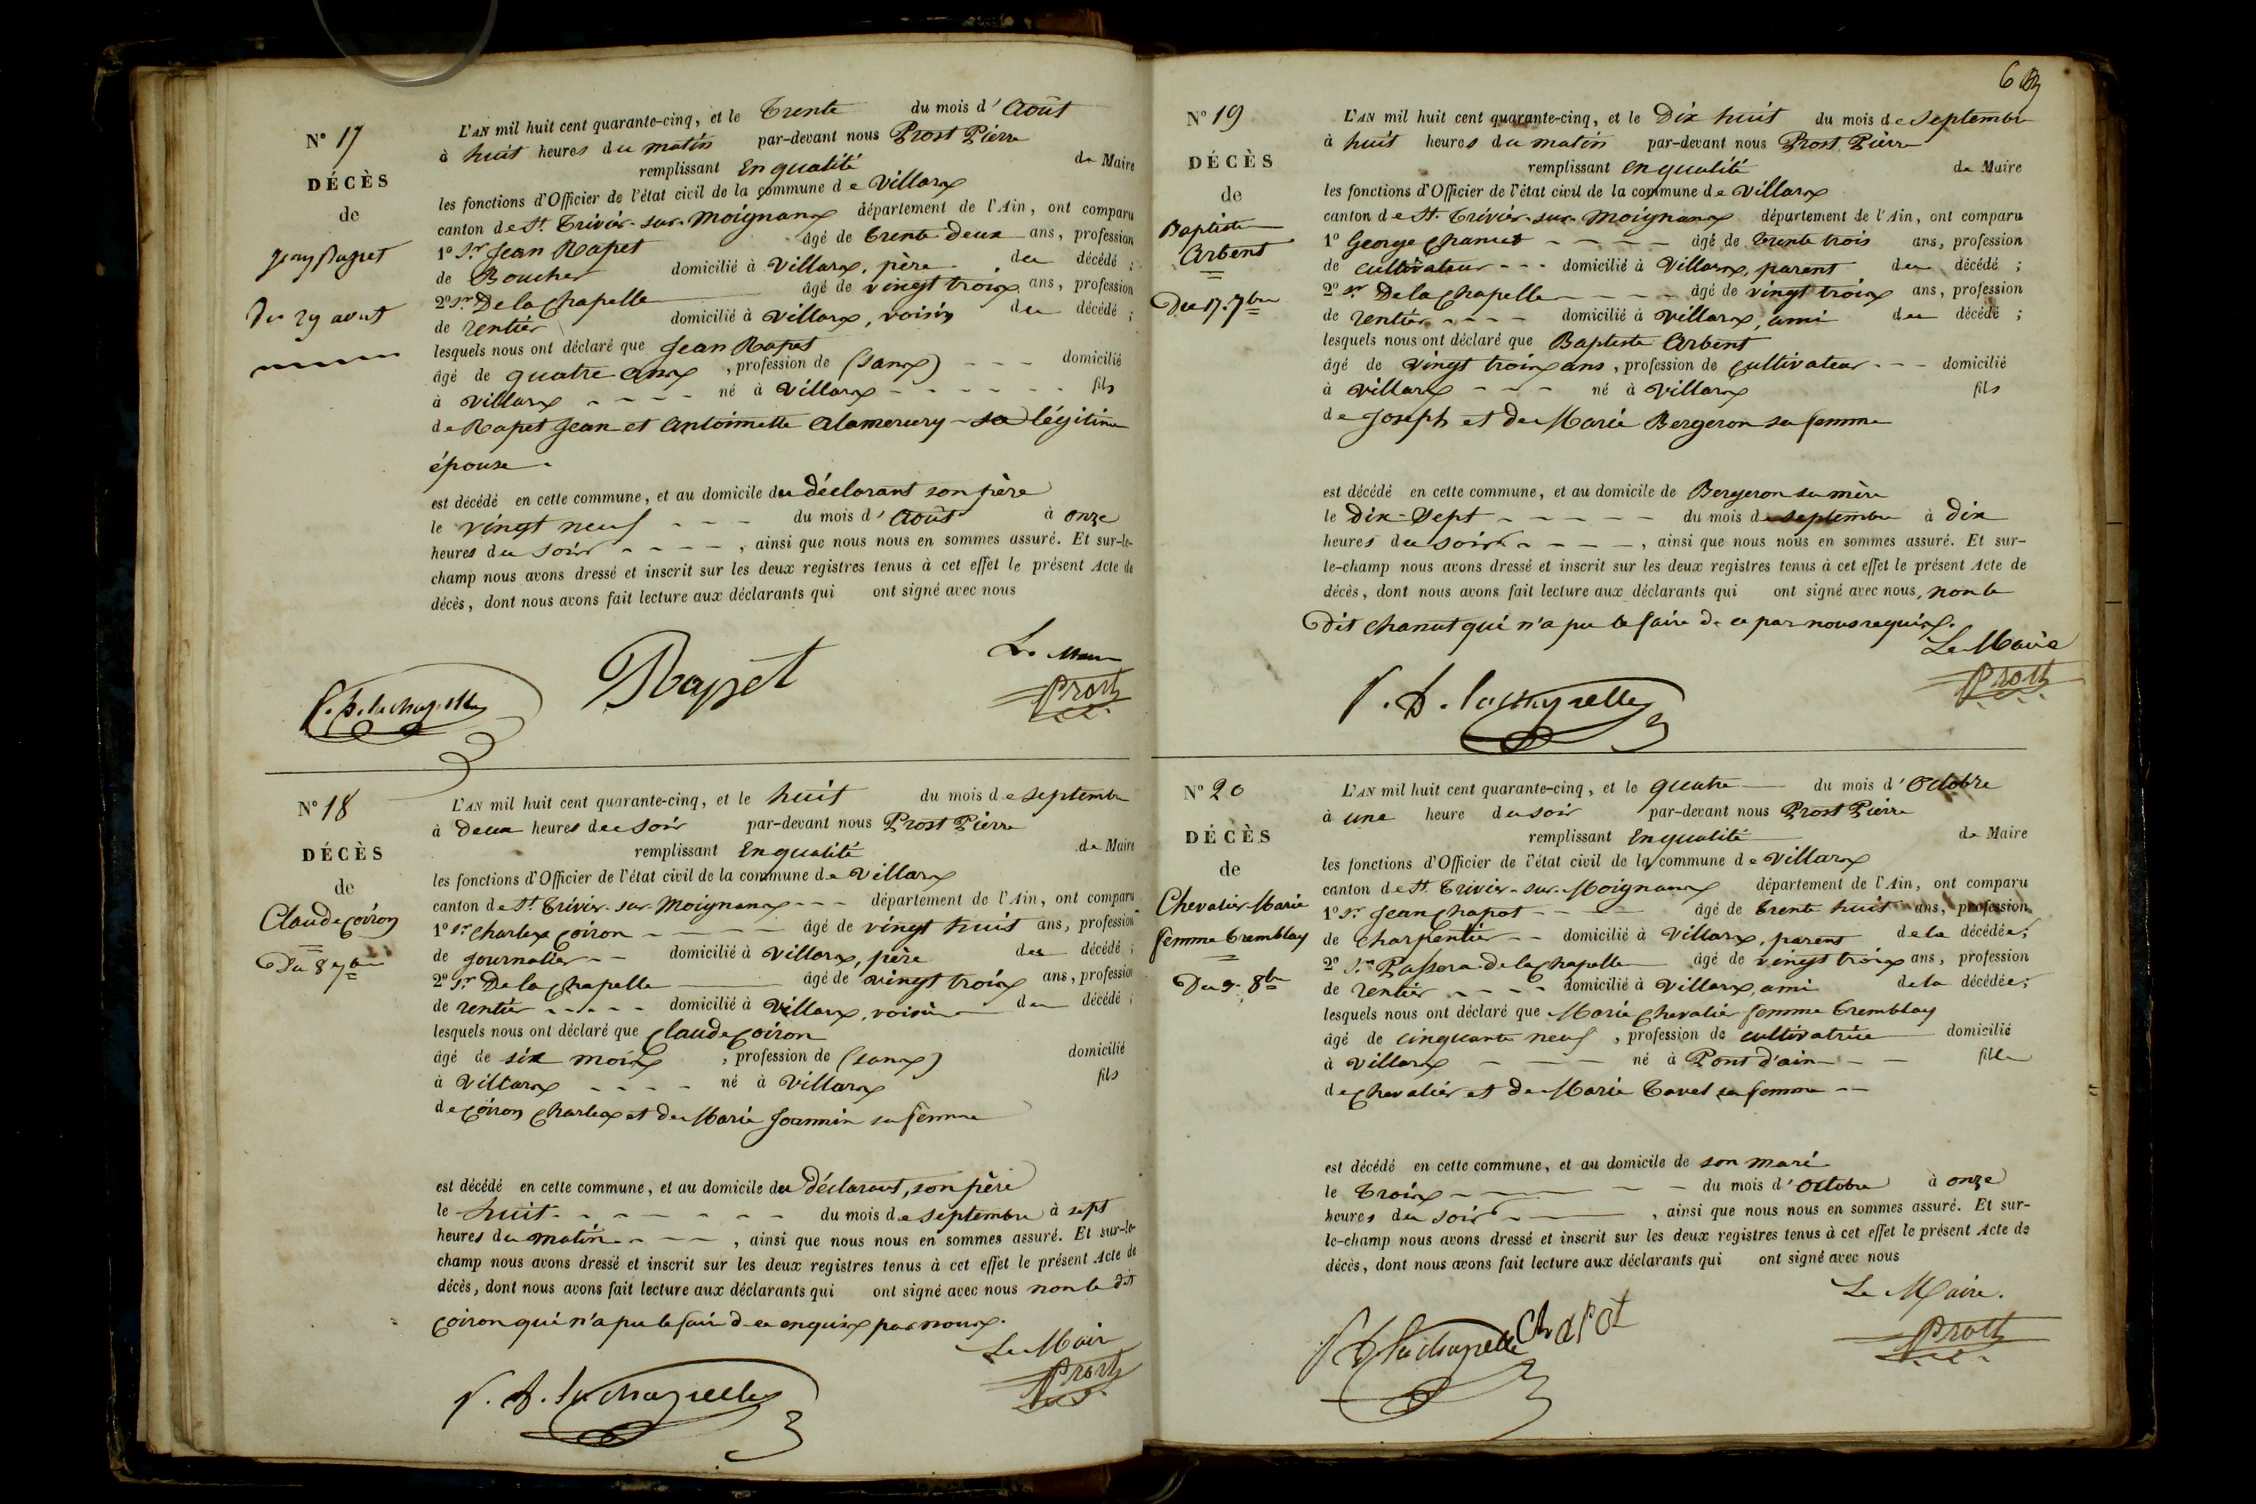 N° 17
DÉCÈS
de
Jean Rapet
Du 29 aout
L'AN mil huit cent quarante-cinq, et le Trente du mois d'Août
à huit heures du matin par-devant nous Prost Pierre
remplissant En qualité de Maire
les fonctions d'Officier de l'état civil de la commune de Villars
canton de St. Trivier-sur-Moignans département de l'Ain, ont comparu
1° Sr. Jean Rapet âgé de trente deux ans, profession
de Boucher domicilié à Villars, père du décédé ;
2° Sr De la Chapelle âgé de vingt trois ans, profession
de rentier domicilié à Villars, voisin du décédé ;
lesquels nous ont déclaré que Jean Rapet
âgé de quatre ans, profession de (sans) domicilié
à Villars né à Villars fils
de Rapet Jean et Antoinette Alamercery sa légitime
épouse.
est décédé en cette commune, et au domicile du déclarant son père
le vingt neuf du mois d'Août à onze
heures du soir, ainsi que nous nous en sommes assuré. Et sur-le-
champ nous avons dressé et inscrit sur les deux registres tenus à cet effet le présent Acte de
décès, dont nous avons fait lecture aux déclarants qui ont signé avec nous
Le Maire
P. D. lachapelle Rapet Prost
N° 18
DÉCÈS
de
Claude Coiron
Du 8 7bre
L'AN mil huit cent quarante-cinq, et le huit du mois de septembre
à deux heures du soir par-devant nous Prost Pierre
remplissant En qualité de Maire
les fonctions d'Officier de l'état civil de la commune de Villars
canton de St. Trivier-sur-Moignans département de l'Ain, ont comparu
1° Sr Charles Coiron âgé de vingt huit ans, profession
de Journalier domicilié à Villars, père du décédé ;
2° Sr. De la Chapelle âgé de vingt trois ans, profession
de rentier domicilié à Villars, voisin du décédé ;
lesquels nous ont déclaré que Claude Coiron
âgé de six mois, profession de (sans) domicilié
à Villars né à Villars fils
de Coiron Charles et de Marie Joannin sa femme
est décédé en cette commune, et au domicile du déclarant, son père
le huit du mois de septembre à sept
heures du matin, ainsi que nous nous en sommes assuré. Et sur-le-
champ nous avons dressé et inscrit sur les deux registres tenus à cet effet le présent Acte de
décès, dont nous avons fait lecture aux déclarants qui ont signé avec nous non le dit
Coiron qui n'a pu le faire de ce enquis par nous.
Le Maire
P. D. lachapelle Prost
N° 19
DÉCÈS
de
Baptiste
Arbent
Du 17. 7bre
L'AN mil huit cent quarante-cinq, et le Dix huit du mois de septembre
à huit heures du matin par-devant nous Prost Pierre
remplissant En qualité de Maire
les fonctions d'Officier de l'état civil de la commune de Villars
canton de St. Trivier-sur-Moignans département de l'Ain, ont comparu
1° George Chanut âgé de trente trois ans, profession
de cultivateur domicilié à Villars, parent du décédé ;
2° Sr De la Chapelle âgé de vingt trois ans, profession
de rentier domicilié à Villars, ami du décédé ;
lesquels nous ont déclaré que Baptiste Arbent
âgé de vingt trois ans, profession de cultivateur domicilié
à Villars né à Villars fils
de Joseph et de Marie Bergeron sa femme
est décédé en cette commune, et au domicile de Bergeron sa mère
le Dix-sept du mois de septembre à dix
heures du soir, ainsi que nous nous en sommes assuré. Et sur-
le-champ nous avons dressé et inscrit sur les deux registres tenus à cet effet le présent Acte de
décès, dont nous avons fait lecture aux déclarants qui ont signé avec nous, non le
Dit Chanut qui n'a pu le faire de ce par nous requis.
Le Maire
P. D. lachapelle Prost
N° 20
DÉCÈS
de
Chevalier Marie
femme Tremblay
Du 3. 8bre
L'AN mil huit cent quarante-cinq, et le quatre du mois d'Octobre
à une heure du soir par-devant nous Prost Pierre
remplissant En qualité de Maire
les fonctions d'Officier de l'état civil de la commune de Villars
canton de St. Trivier-sur-Moignans département de l'Ain, ont comparu
1° Sr Jean Chapot âgé de trente huit ans, profession
de Charpentier domicilié à Villars, parent de la décédée ;
2° Sr Passera de la Chapelle âgé de vingt trois ans, profession
de rentier domicilié à Villars, ami de la décédée ;
lesquels nous ont déclaré que Marie Chevalier femme Tremblay
âgé de cinquante neuf, profession de cultivatrice domicilié
à Villars né à Pont d'ain fille
de Chevalier et de Marie Tavel sa femme
est décédé en cette commune, et au domicile de son mari
le Trois du mois d'Octobre à onze
heures du soir, ainsi que nous nous en sommes assuré. Et sur-
le-champ nous avons dressé et inscrit sur les deux registres tenus à cet effet le présent Acte de
décès, dont nous avons fait lecture aux déclarants qui ont signé avec nous
Le Maire.
P D lachapelle Chapot Prost